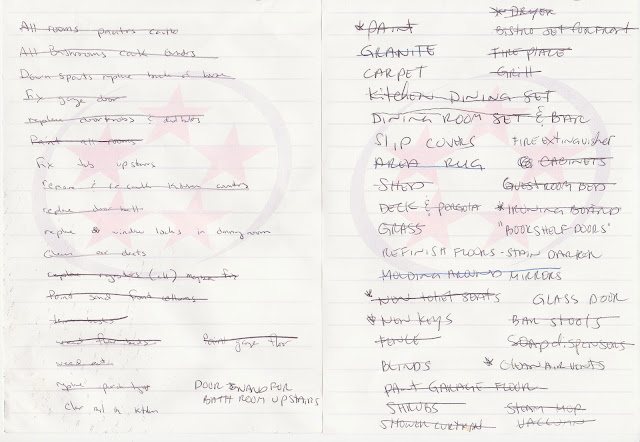 All rooms painters caulk
All Bathrooms caulk
Down spouts replace back of house
Fix garage door
replace
Paint all rooms
Fix tubs upstairs
Repair & re-caulk kitchen
replace door
replace window locks in dining room
Clean air ducts
replace registers (all)
Paint front columns
Paint garage floor
weed
replace
DOOR FOR
BATH ROOM UPSTAIRS
* PAINT
GRANITE
CARPET
KITCHEN DINING SET
DINING ROOM SET & BAR
SLIP COVERS
AREA RUG
SHED
DECK & PERGOLA
GRASS
REFINISH FLOORS - STAIN DARKER
MOLDING AROUND MIRRORS
* NEW TOILET SEATS
* NEW KEYS
FENCE
BLINDS
PAINT GARAGE FLOOR
SHRUBS
SHOWER CURTAIN
* DRYER
BISTRO SET FOR FRONT
FIRE PLACE
Grill
FIRE EXTINGUISHER
CABINETS
GUESTROOM BED
* IRONING BOARD
"BOOKSHELF DOORS"
GLASS DOOR
BAR STOOLS
SOAP dispensors
* CLEAN AIR VENTS
STEAM MOP
VACCUUM